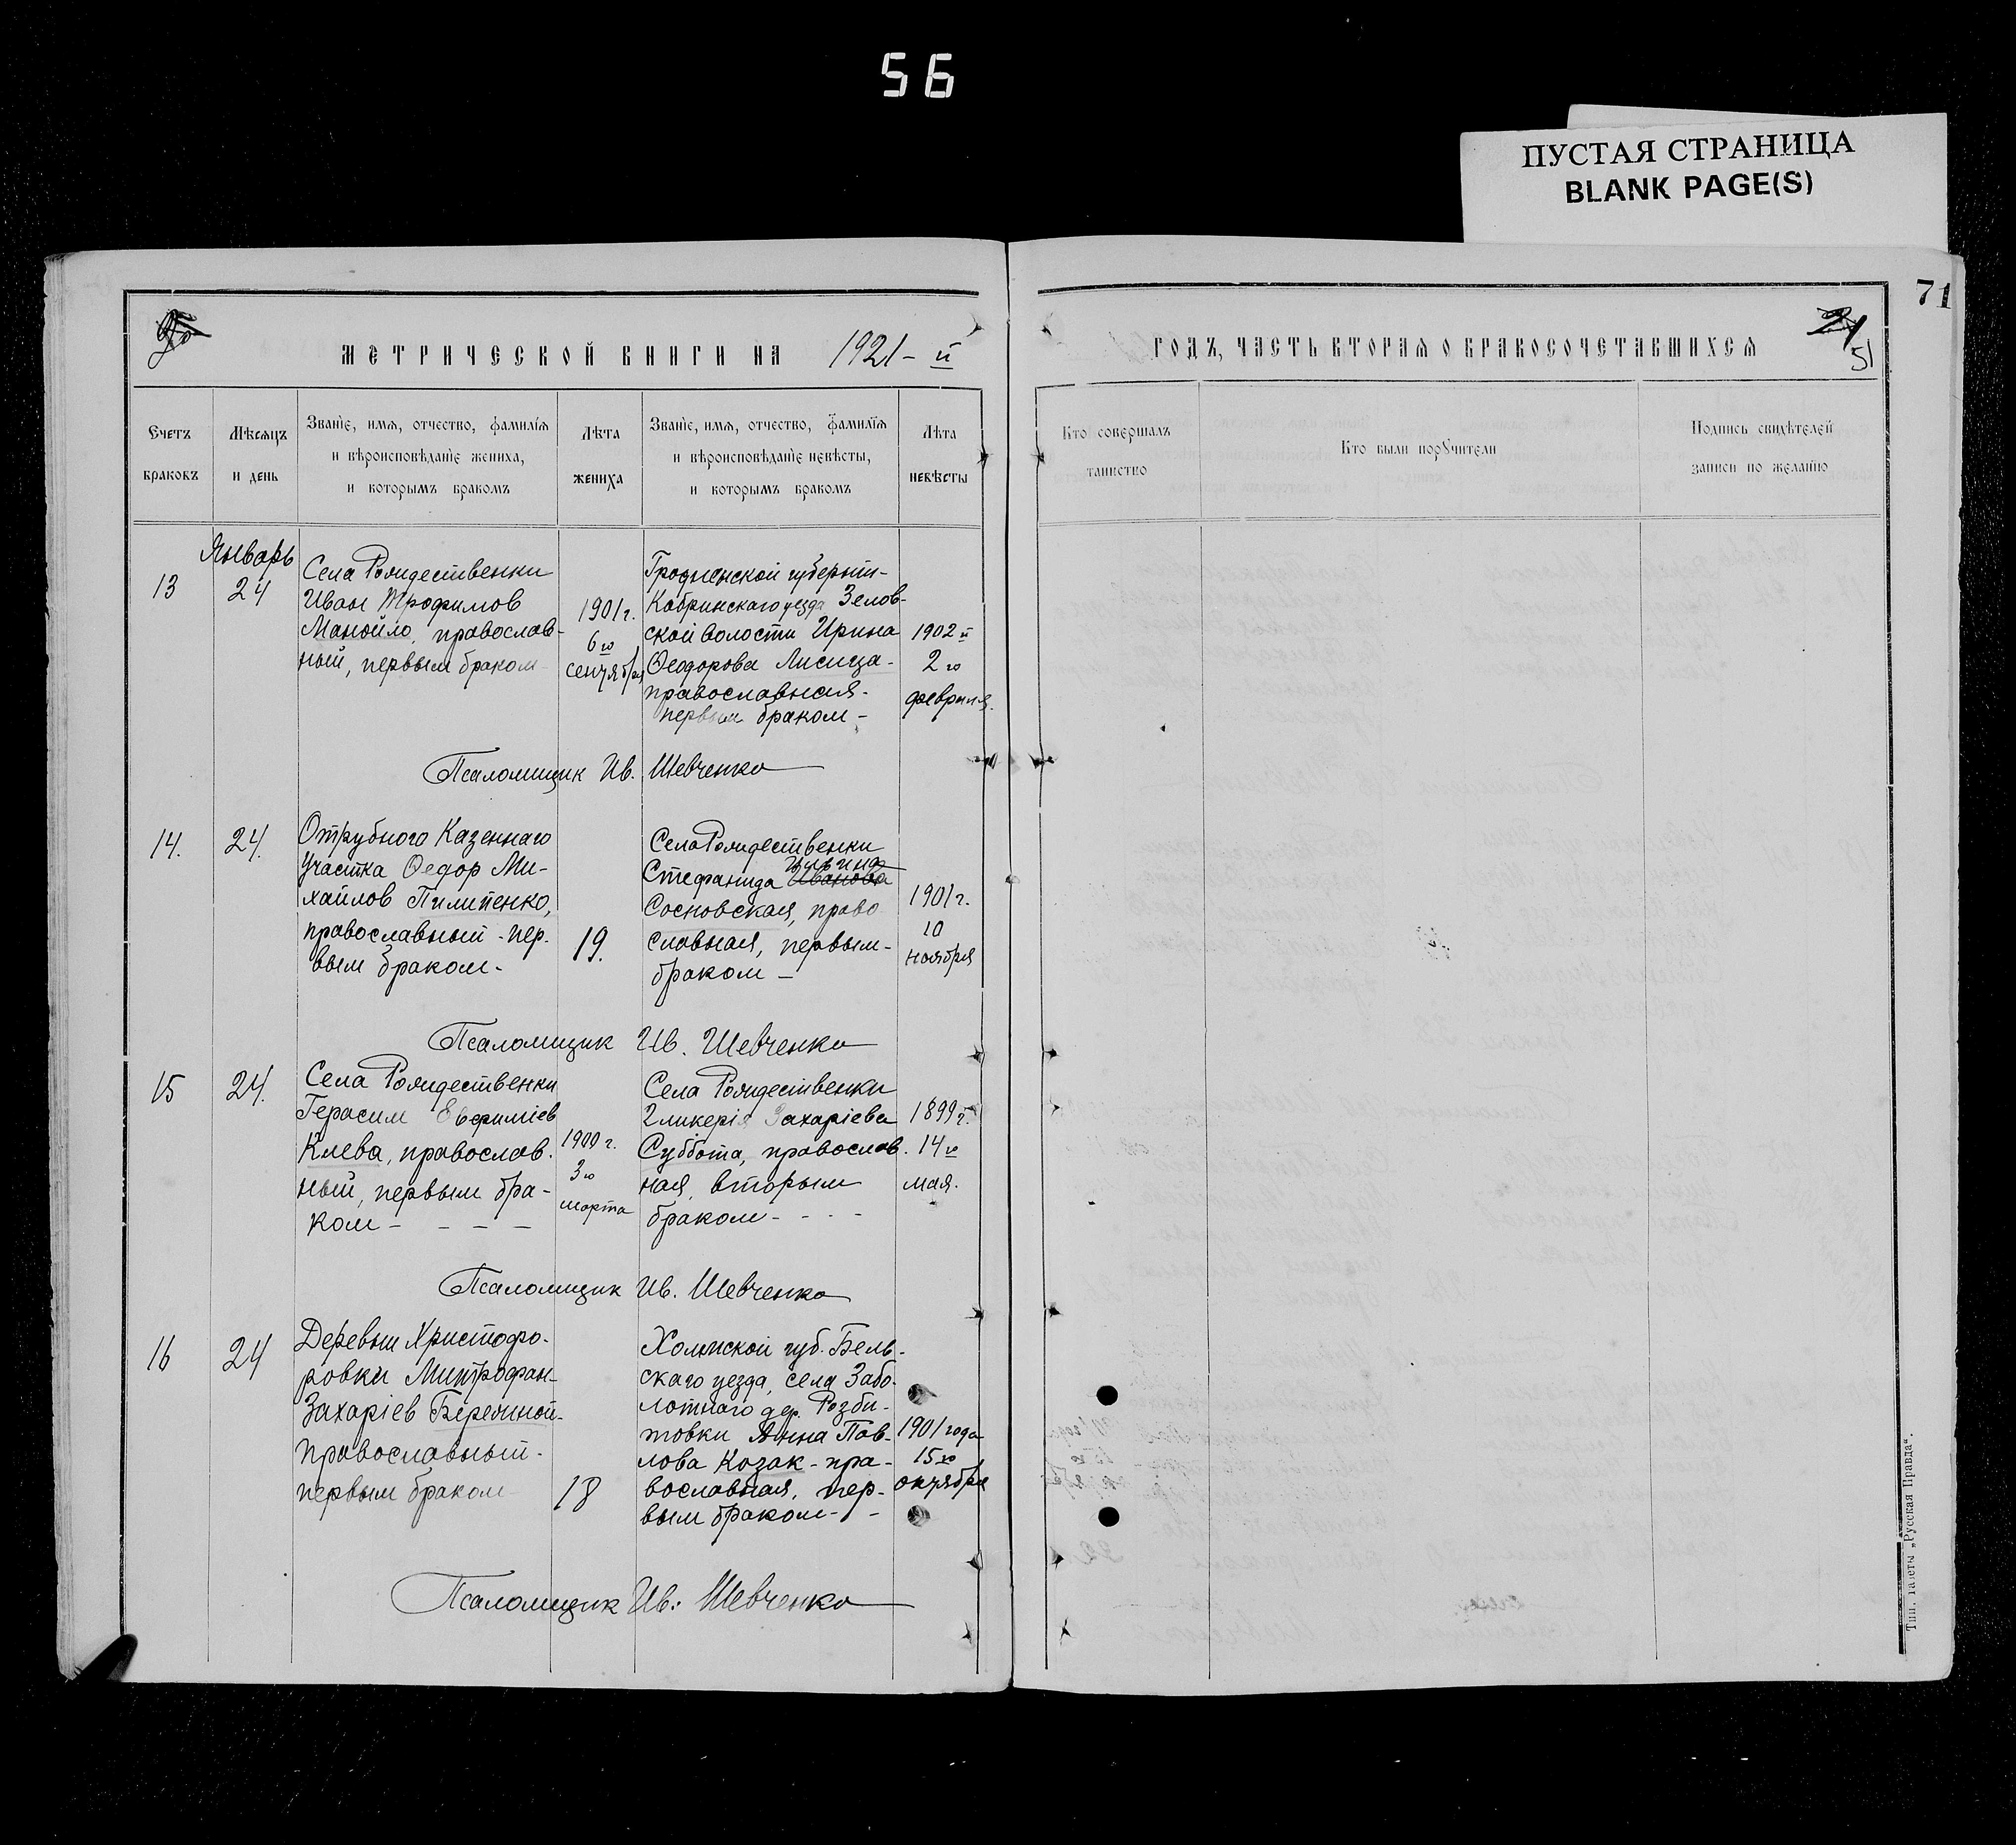 56
ПУСТАЯ СТРАНИЦА
BLANK PAGE(S)
71
51
МЕТРИЧЕСКОЙ КНИГИ НА 1921-й
ГОДЪ, ЧАСТЬ ВТОРАЯ О БРАКОСОЧЕТАВШИХСЯ
Счетъ браковъ
Мѣсяцъ и день
Званіе, имя, отчество, фамилія
и вѣроисповѣданіе жениха,
и которымъ бракомъ
Лѣта жениха
Званіе, имя, отчество, фамилія
и вѣроисповѣданіе невѣсты,
и которымъ бракомъ
Лѣта невѣсты
Кто совершалъ
таинство
Кто были поручители
Подпись свидѣтелей
записи по желанію
Январь
13
24
Села Рождественки
Иван Трофимов
Манойло, православ-
ный, первым браком
1901 г.
6го
сентября
Гродненской губерни-
Кобринскаго уезда Зелов-
ской волости Ирина
Ѳеодорова Лисица-
православная-
первым браком-
1902 й
2 го
февраля.
Псаломщик Ив. Шевченко
14.
24.
Отрубного Казеннаго
Участка Ѳедор Ми-
хайлов Пилипенко,
православный - пер-
вым браком-
19.
Села Рождественки
Стефанида Иванова
Сосновская, право
славная, первым-
браком-
1901 г.
10
ноября
Псаломщик Ив. Шевченко
15
24.
Села Рождественки
Герасим Евфиміев
Клева, православ.
ный, первым бра-
ком - - - -
1900 г.
3го
марта
Села Рождественки
Гликерія Захаріева
Суббота, православ.
ная, вторым
браком- - - -
1899 г.
14го
мая.
Псаломщик Ив. Шевченко
16
24
Деревни Христофо-
ровки Митрофан
Захаріев
православный-
первым браком
18
Холмской губ. Бель-
скаго уезда, села Забо-
лотнаго дер. Розби-
товки Анна Пав-
лова Козак - пра-
вославная, пер-
вым браком- -
1901 года
15го
октября
Псаломщик Ив. Шевченко
Тип. газеты „Русская Правда".